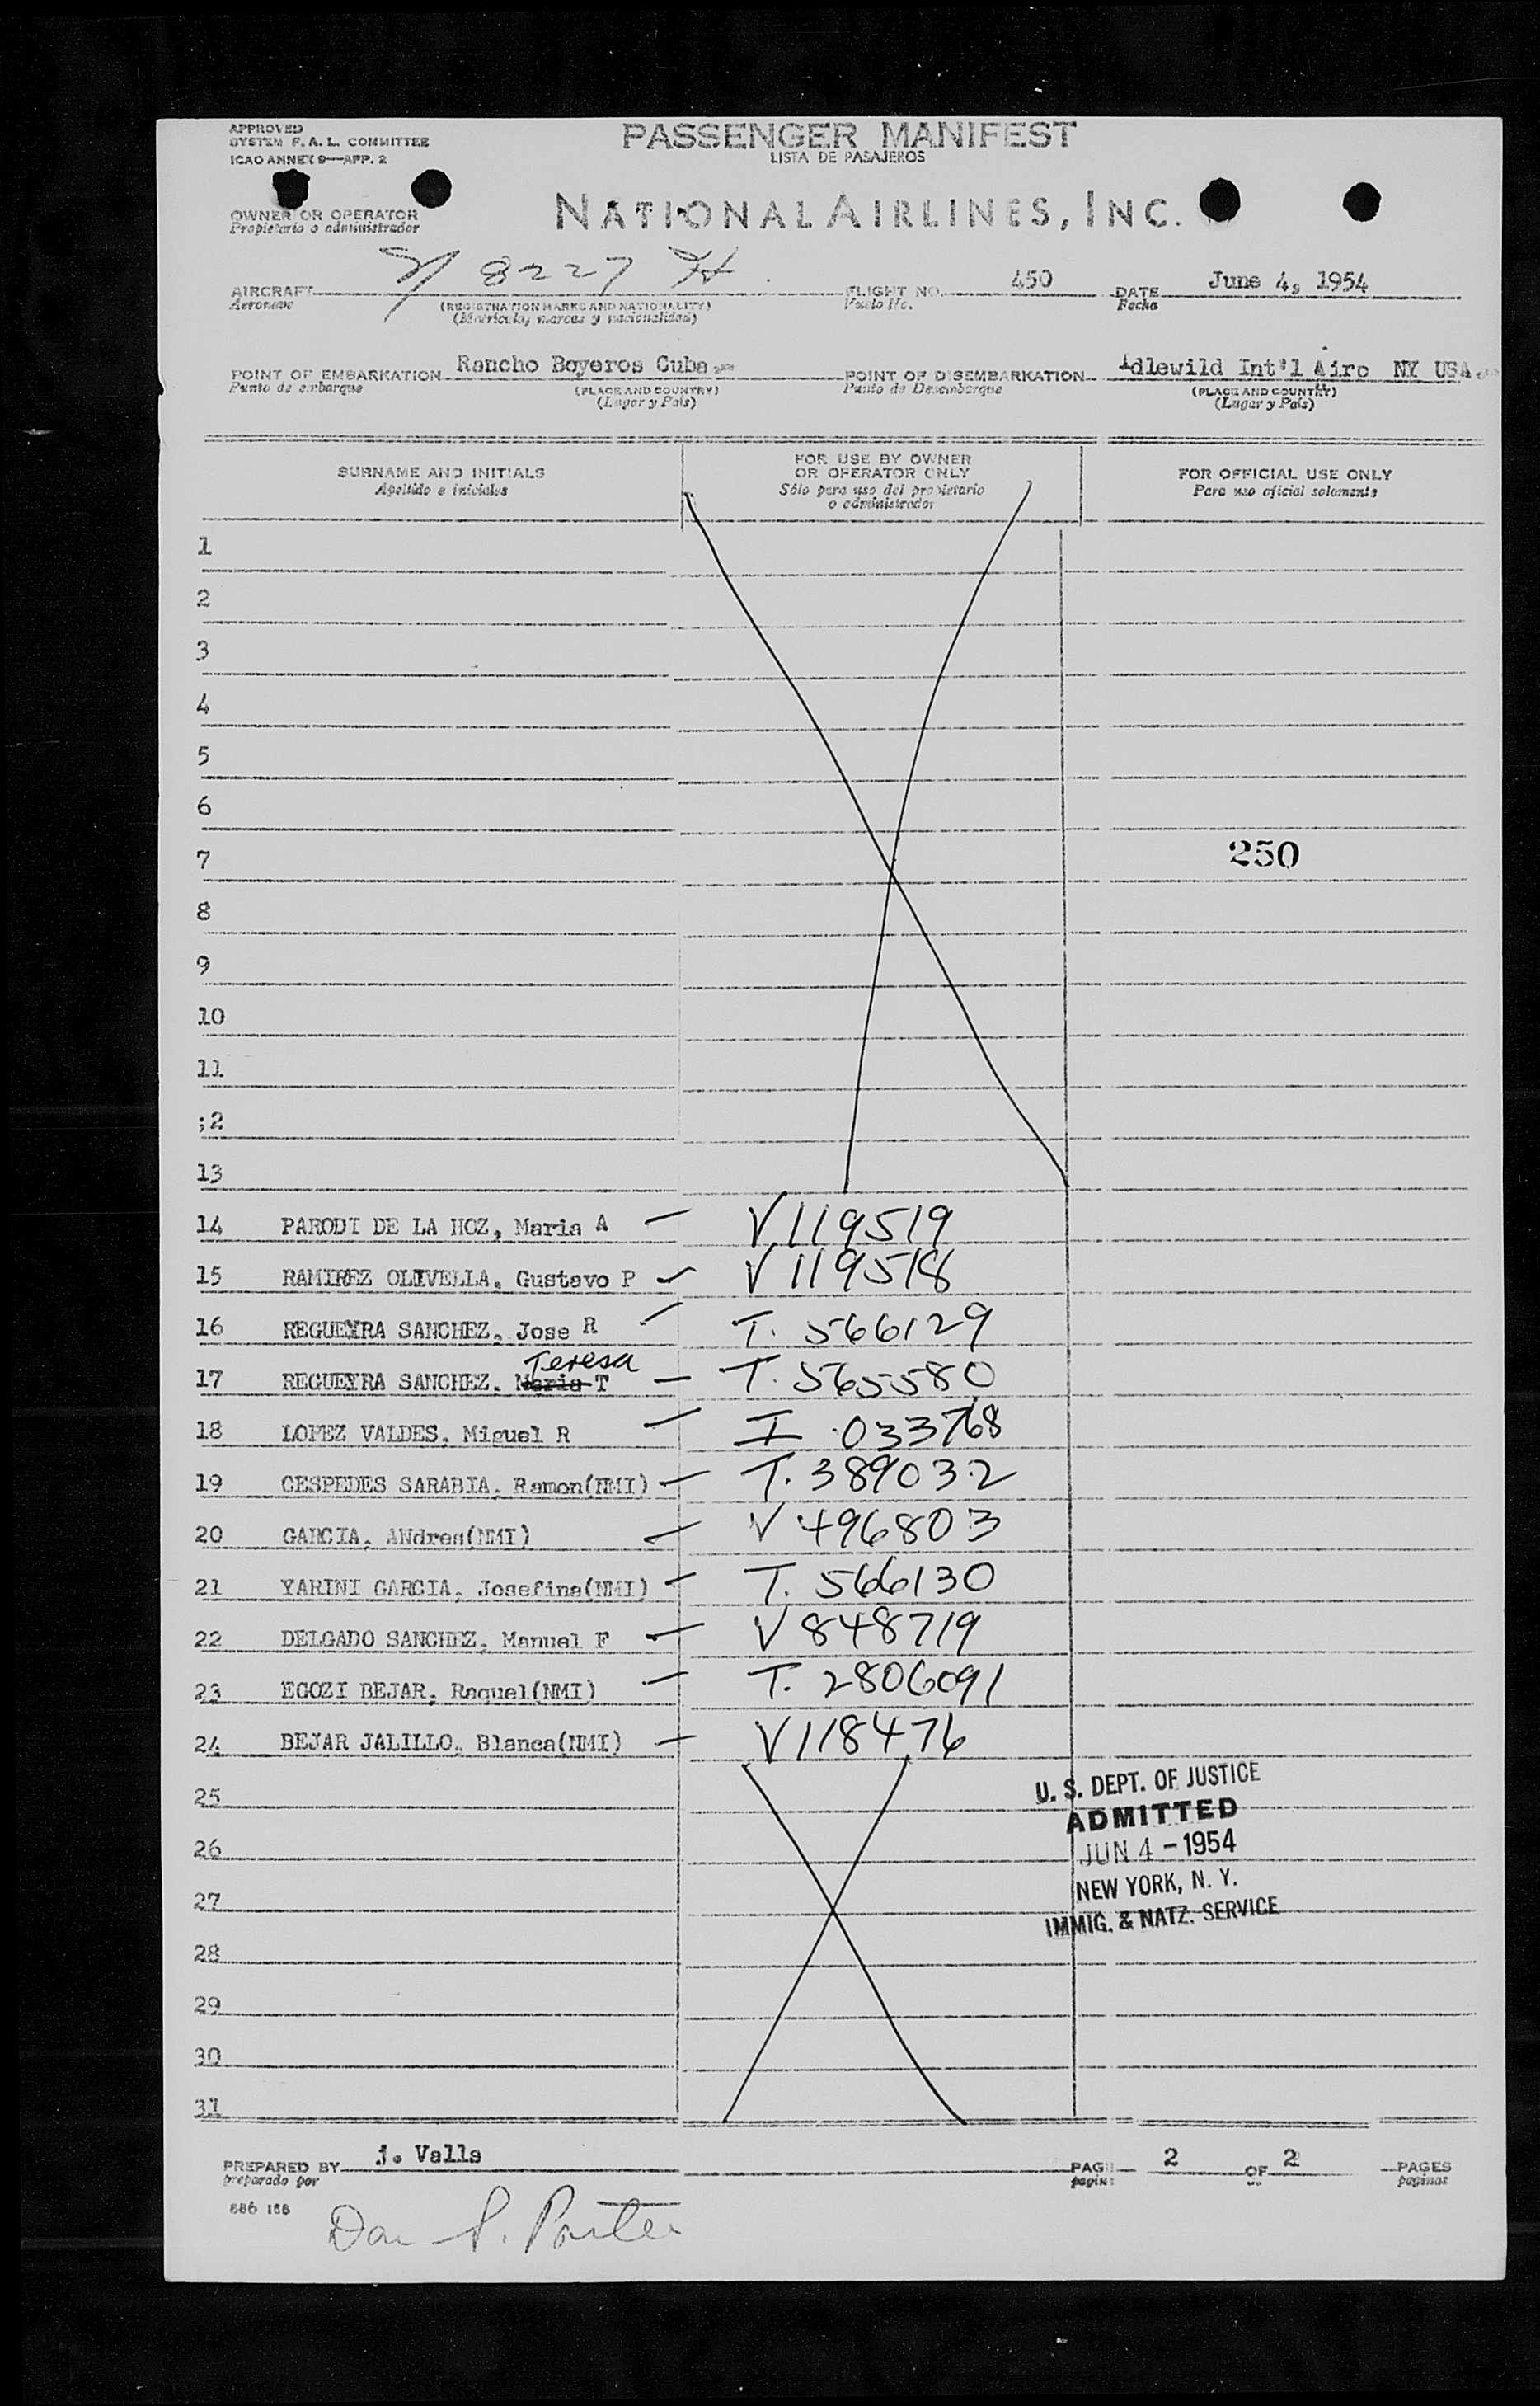 APPROVED
SYSTEM F. A. L. COMMITTEE
ICAO ANNEX 9—APP. 2
PASSENGER MANIFEST
LISTA DE PASAJEROS
OWNER OR OPERATOR
Propietario o administrador
NATIONAL AIRLINES, INC.
AIRCRAFT N 8227 H FLIGHT NO. 450 DATE June 4, 1954
Aeronave (REGISTRATION MARKS AND NATIONALITY) Vuelo No. Fecha
(Matrícula, marcas y nacionalidad)
POINT OF EMBARKATION Rancho Boyeros Cuba POINT OF DISEMBARKATION Idlewild Int'l Airp NY USA
Punto de embarque (PLACE AND COUNTRY) Punto de Desembarque (PLACE AND COUNTRY)
(Lugar y País) (Lugar y País)
SURNAME AND INITIALS FOR USE BY OWNER OR OPERATOR ONLY FOR OFFICIAL USE ONLY
Apellido e iniciales Sólo para uso del propietario o administrador Para uso oficial solamente
1
2
3
4
5
6
7 250
8
9
10
11
;2
13
14 PARODI DE LA HOZ, Maria A V 119519
15 RAMIREZ OLIVELLA, Gustavo P V 119518
16 REGUEYRA SANCHEZ, Jose R T. 566129
Teresa
17 REGUEYRA SANCHEZ, Maria T T. 565580
18 LOPEZ VALDES, Miguel R I 033768
19 CESPEDES SARABIA, Ramon(NMI) T. 389032
20 GARCIA, ANdres(NMI) V 496803
21 YARINI GARCIA, Josefina(NMI) T. 566130
22 DELGADO SANCHEZ, Manuel F V 848719
23 EGOZI BEJAR, Raquel(NMI) T. 2806091
24 BEJAR JALILLO, Blanca(NMI) V 118476
25
26
27
28
29
30
31
U. S. DEPT. OF JUSTICE
ADMITTED
JUN 4 - 1954
NEW YORK, N. Y.
IMMIG. & NATZ. SERVICE
PREPARED BY j. Valls PAGE 2 OF 2 PAGES
preparado por pagina paginas
886 188
Dan S. Porter